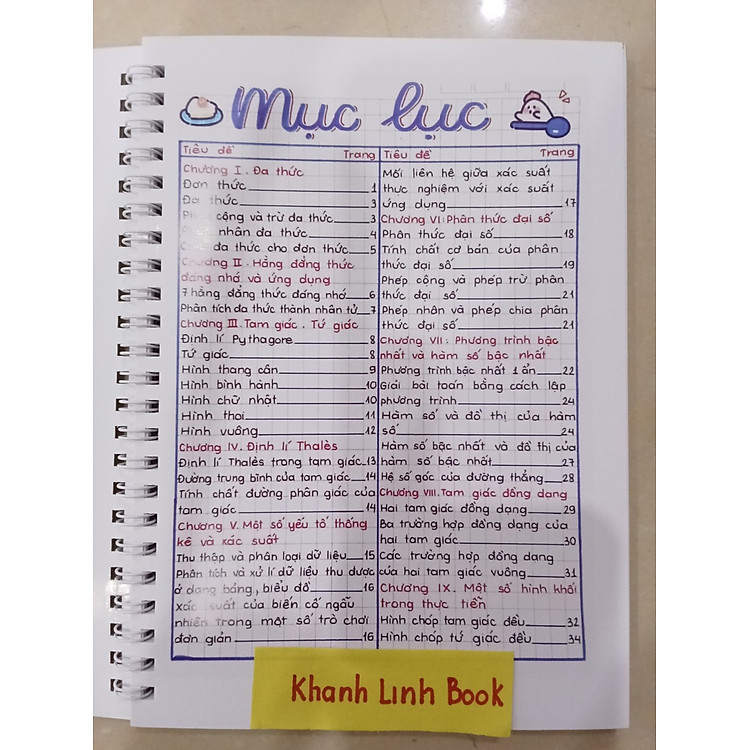 Mục lục
Tiêu đề Trang
Chương I. Đa thức
Đơn thức 1
Đa thức 3
cộng và trừ đa thức 3
nhân đa thức 4
đa thức cho đơn thức 5
Chương II. Hằng đẳng thức
đáng nhớ và ứng dụng
7 hằng đẳng thức đáng nhớ 6
Phân tích đa thức thành nhân tử 7
Chương III. Tam giác. Tứ giác
Định lí Pythagore 8
Tứ giác 8
Hình thang cân 9
Hình bình hành 10
Hình chữ nhật 10
Hình thoi 11
Hình vuông 12
Chương IV. Định lí Thalès
Định lí Thalès trong tam giác 13
Đường trung bình của tam giác 14
Tính chất đường phân giác của
tam giác 14
Chương V. Một số yếu tố thống
kê và xác suất
Thu thập và phân loại dữ liệu 15
Phân tích và xử lí dữ liệu thu được
ở dạng bảng, biểu đồ 16
Xác suất của biến cố ngẫu
nhiên trong một số trò chơi
đơn giản 16
Tiêu đề Trang
Mối liên hệ giữa xác suất
thực nghiệm với xác suất
ứng dụng 17
Chương VI: Phân thức đại số
Phân thức đại số 18
Tính chất cơ bản của phân
thức đại số 19
Phép cộng và phép trừ phân
thức đại số 21
Phép nhân và phép chia phân
thức đại số 21
Chương VII: Phương trình bậc
nhất và hàm số bậc nhất
Phương trình bậc nhất 1 ẩn 22
Giải bài toán bằng cách lập
phương trình 24
Hàm số và đồ thị của hàm
số 24
Hàm số bậc nhất và đồ thị của
hàm số bậc nhất 27
Hệ số góc của đường thẳng 28
Chương VIII. Tam giác đồng dạng
Hai tam giác đồng dạng 29
Ba trường hợp đồng dạng của
hai tam giác 30
Các trường hợp đồng dạng
của hai tam giác vuông 31
Chương IX. Một số hình khối
trong thực tiễn
Hình chóp tam giác đều 32
Hình chóp tứ giác đều 34
Khanh Linh Book